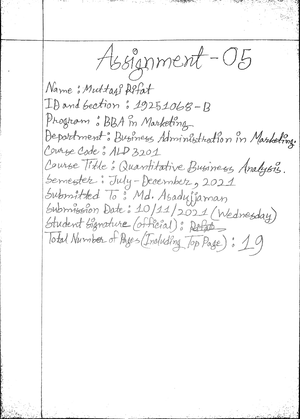 Assignment - 05
Name : Muttaqi Rifat
ID and Section : 19251068-B
Program : BBA in Marketing
Department : Business Administration in Marketing.
Course Code : ALD 3201
Course Title : Quantitative Business Analysis.
Semester : July-December, 2021
Submitted To : Md. Asadujjaman
Submission Date : 10/11/2021 (Wednesday)
Student Signature (official) : Rifat
Total Number of Pages (Including Top Page) : 19